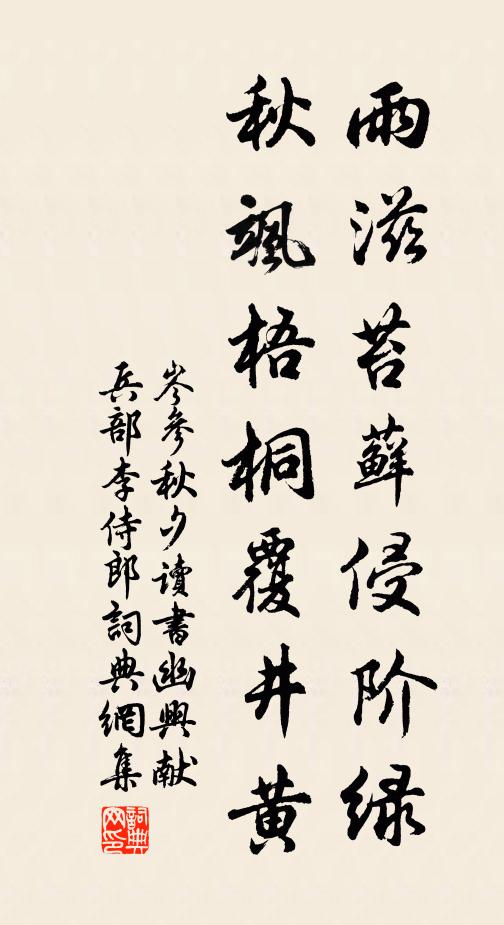 雨滋苔藓侵阶绿
秋飒梧桐覆井黄
岑參秋夕讀書幽興献
兵部李侍郎詞典網集
詞典
网印